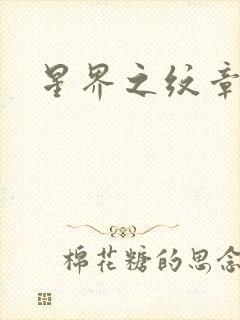 星界之纹章
棉花糖的思念